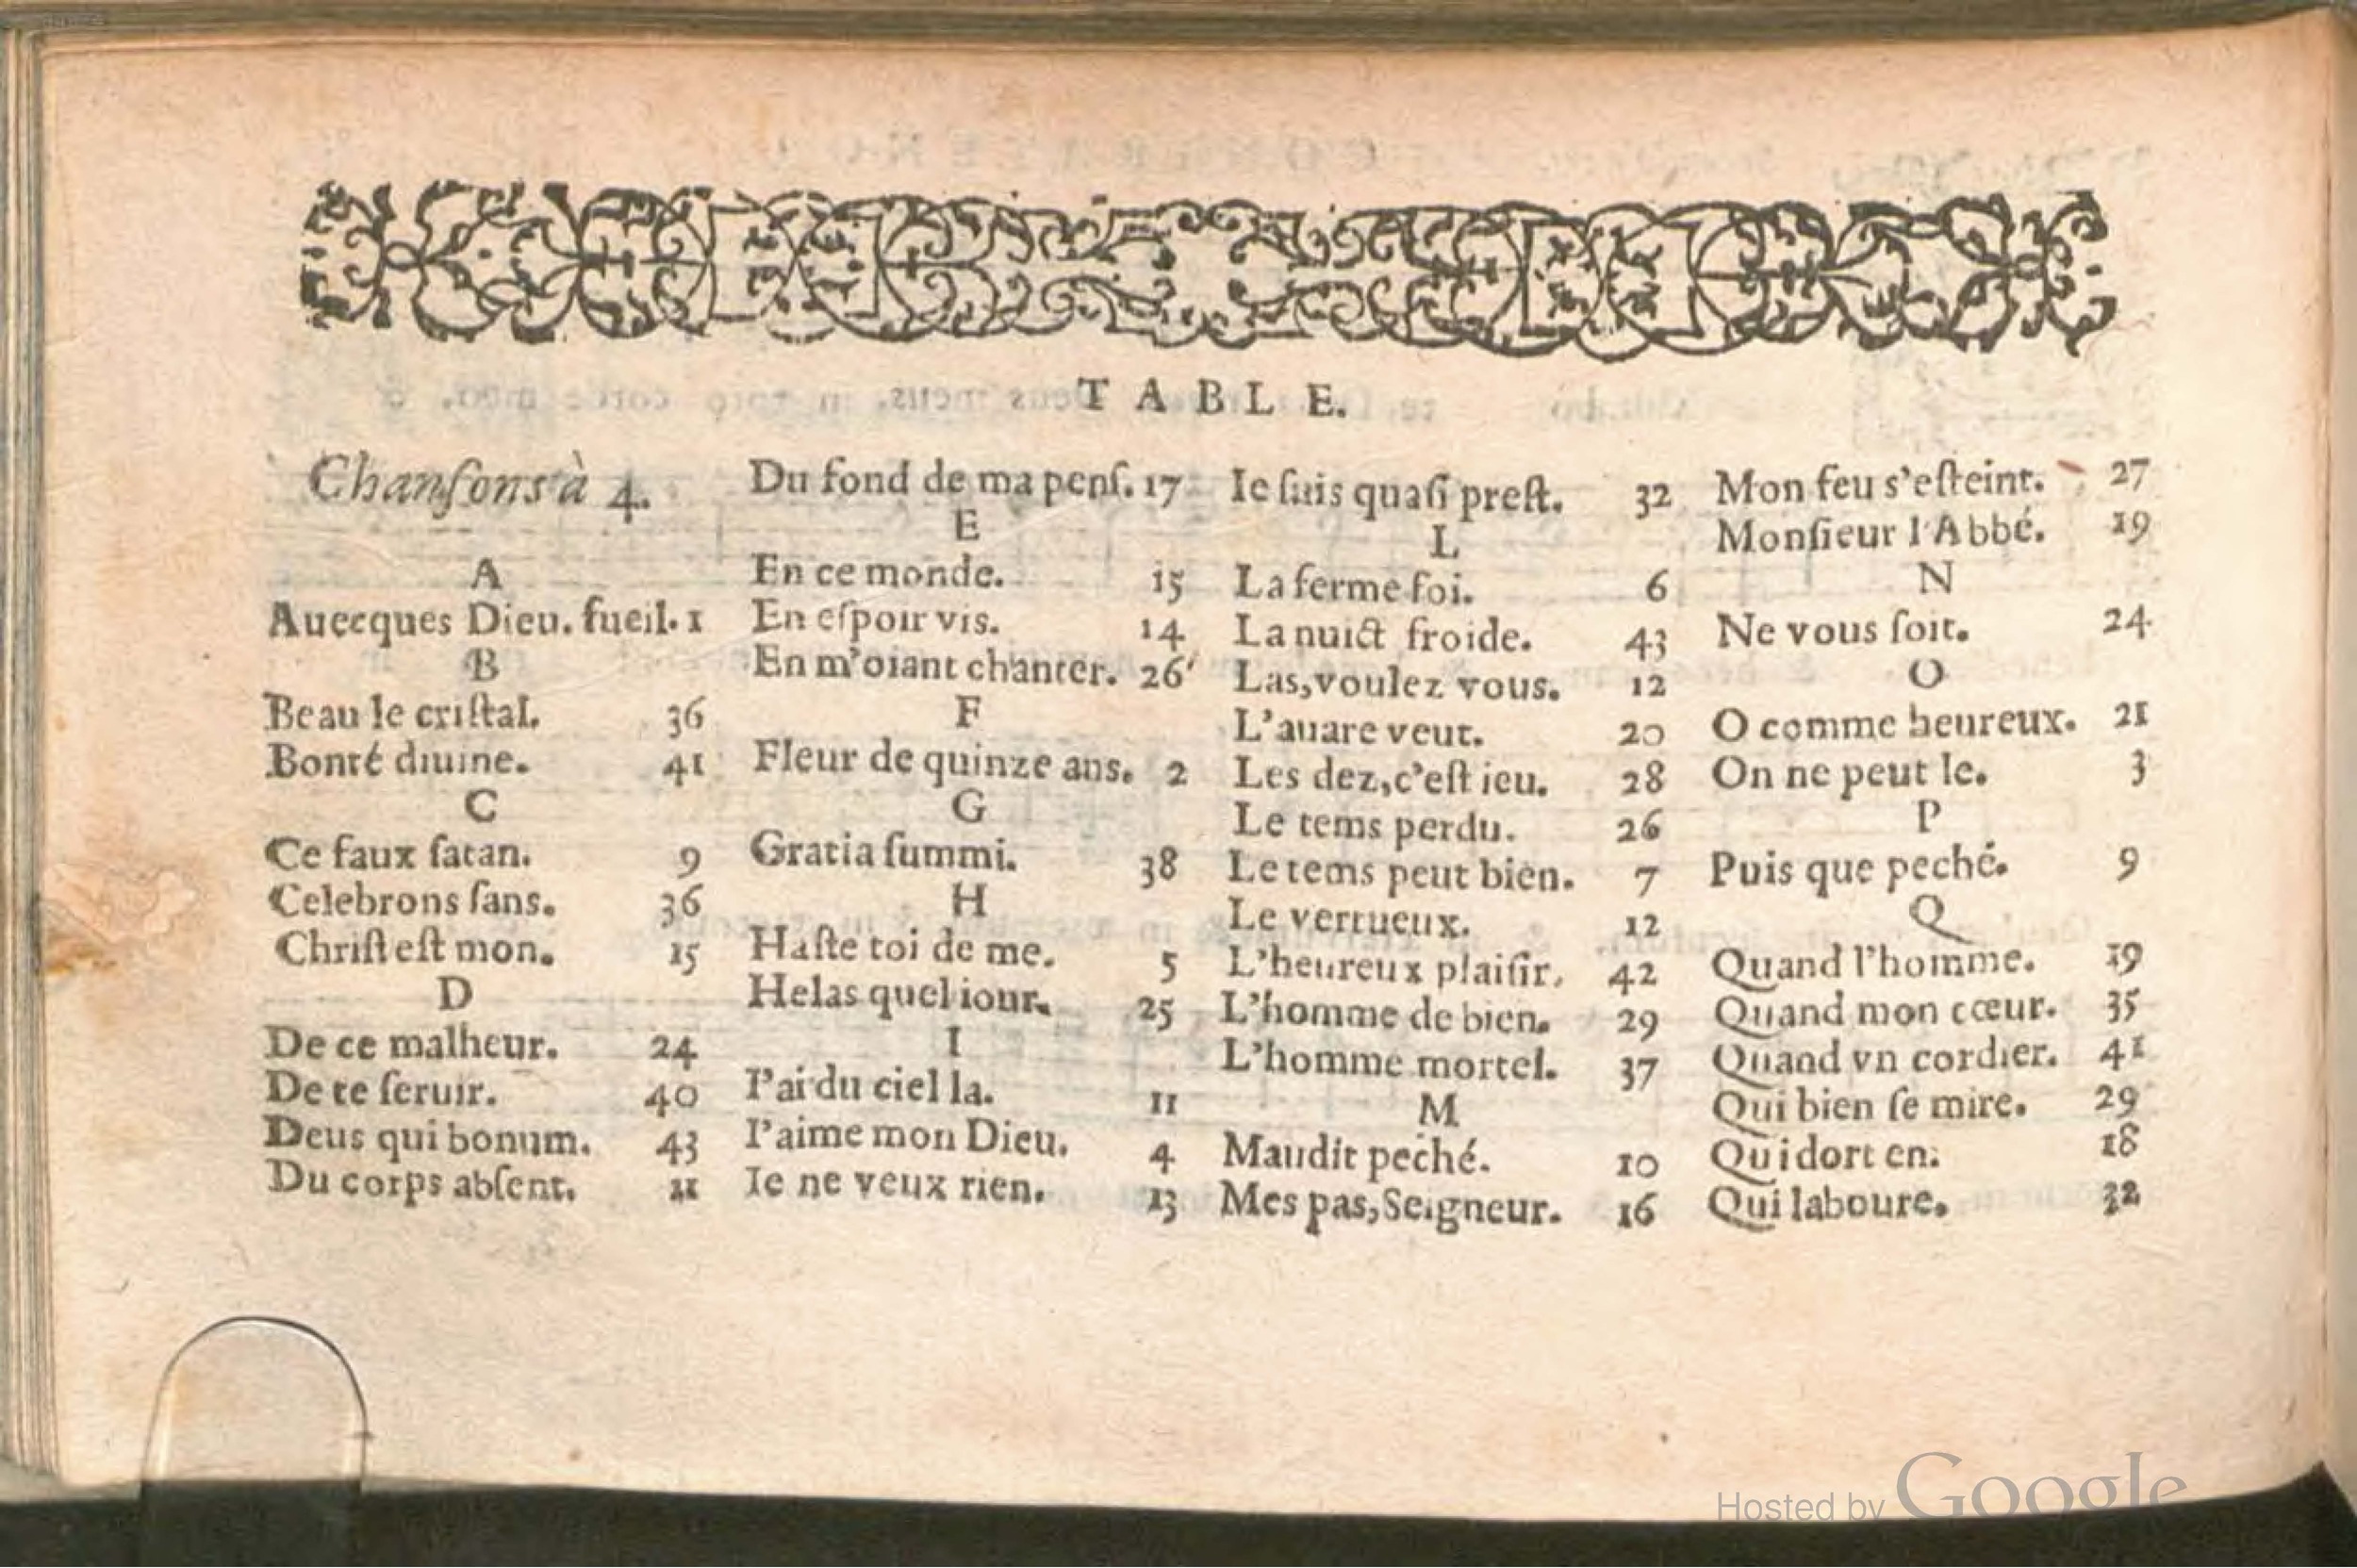 TABLE.
Chanſons à 4.
A
Auecques Dieu. fueil. 1
B
Beau le criſtal. 36
Bonté diuine. 41
C
Ce faux ſatan. 9
Celebrons ſans. 36
Chriſt eſt mon. 15
D
De ce malheur. 24
De te ſeruir. 40
Deus qui bonum. 43
Du corps abſent. 11
Du fond de ma penſ. 17
E
En ce monde. 15
En eſpoir vis. 14
En m'oiant chanter. 26
F
Fleur de quinze ans. 2
G
Gratia ſummi. 38
H
Haſte toi de me. 5
Helas quel iour. 25
I
I'ai du ciel la. 11
I'aime mon Dieu. 4
Ie ne veux rien. 13
Ie ſuis quaſi preſt. 32
L
La ferme foi. 6
La nuict froide. 43
Las, voulez vous. 12
L'auare veut. 20
Les dez, c'eſt ieu. 28
Le tems perdu. 26
Le tems peut bien. 7
Le vertueux. 12
L'heureux plaiſir. 42
L'homme de bien. 29
L'homme mortel. 37
M
Maudit peché. 10
Mes pas, Seigneur. 16
Mon feu s'eſteint. 27
Monſieur l'Abbé. 19
N
Ne vous ſoit. 24
O
O comme heureux. 21
On ne peut le. 3
P
Puis que peché. 9
Q
Quand l'homme. 19
Quand mon cœur. 35
Quand vn cordier. 41
Qui bien ſe mire. 29
Qui dort en. 18
Qui laboure. 32
Hosted by Google